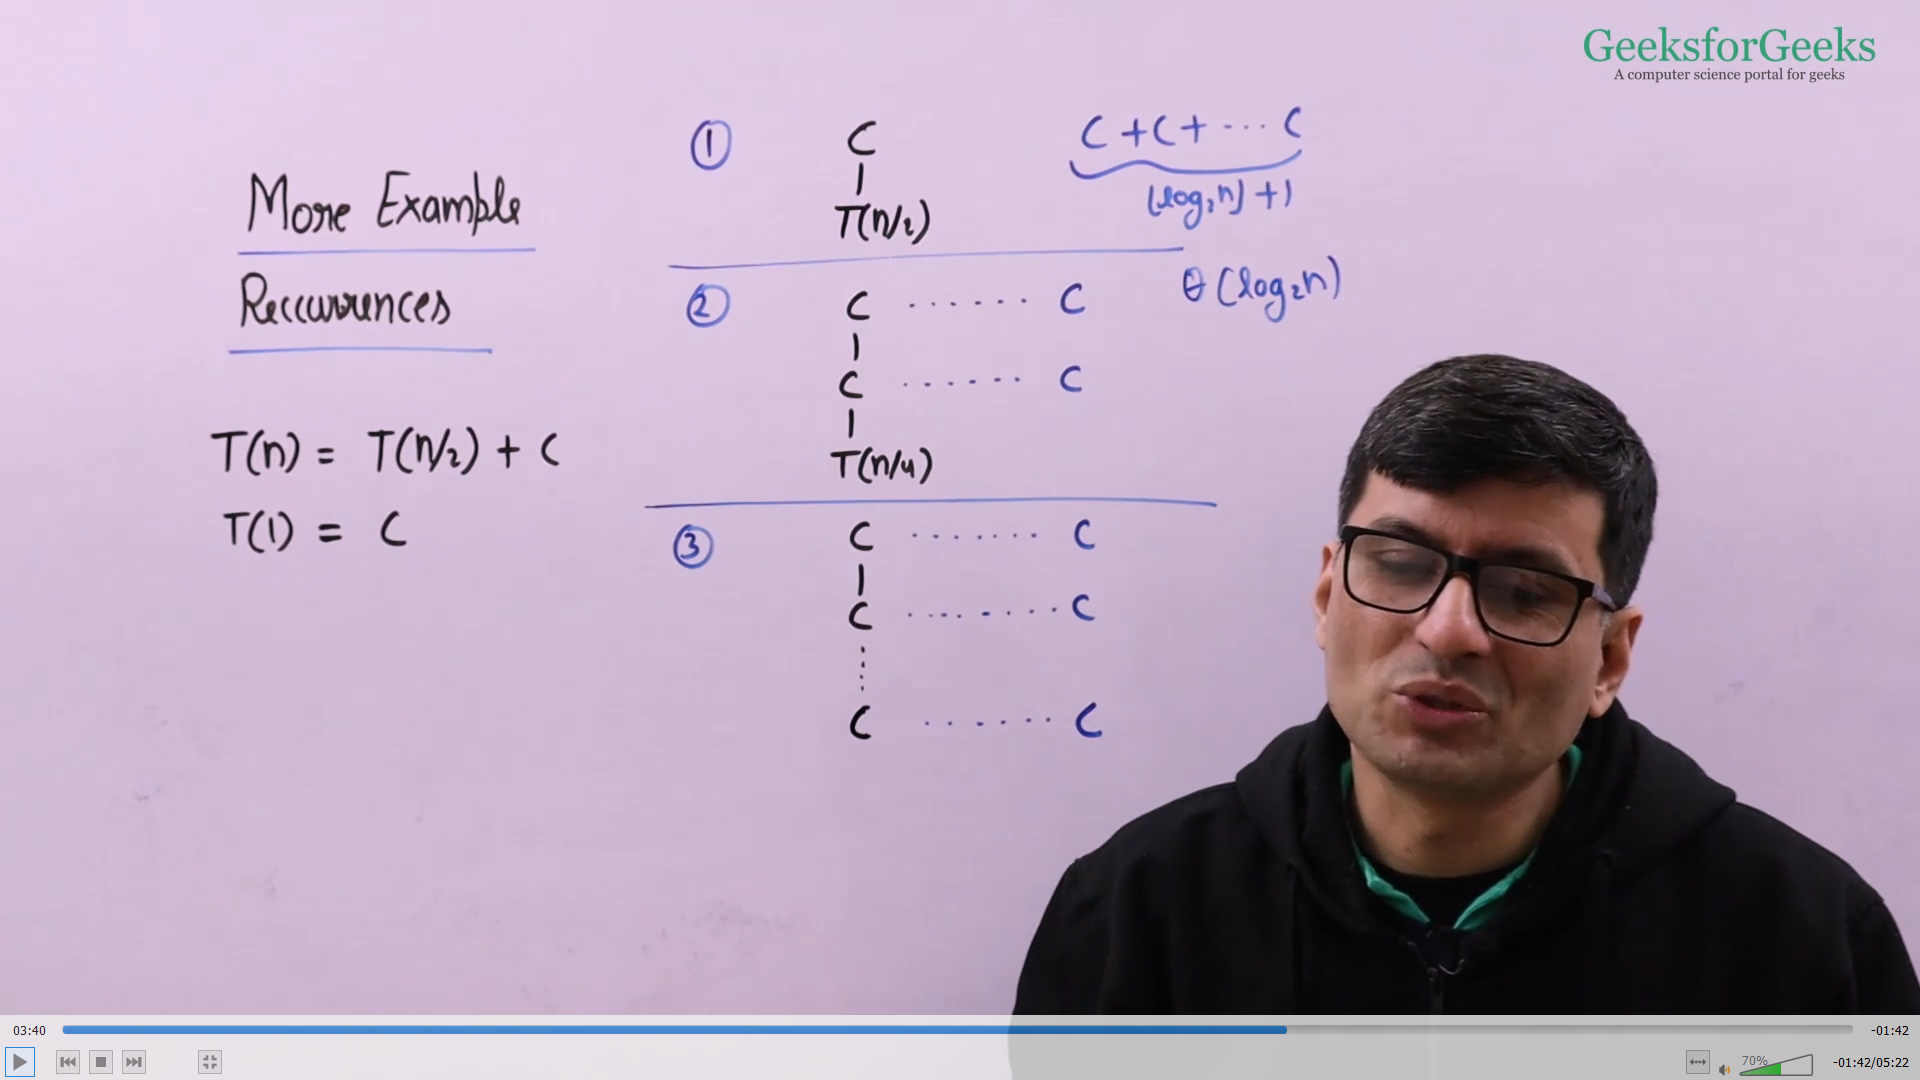 GeeksforGeeks
A computer science portal for geeks
More Example
Reccurrences
T(n) = T(n/2) + C
T(1) = C
①
C
T(n/2)
C + C + ···· C
⌊log₂n⌋ + 1
θ(log₂n)
②
C ······· C
C ······· C
T(n/4)
③
C ······· C
C ········ C
C ······· C
03:40
-01:42
70%
-01:42/05:22